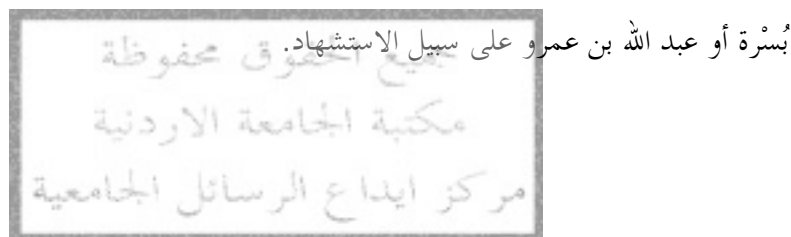 بُسْرة أو عبد الله بن عمرو على سبيل الاستشهاد.
جميع الحقوق محفوظة
مكتبة الجامعة الاردنية
مركز ايداع الرسائل الجامعية